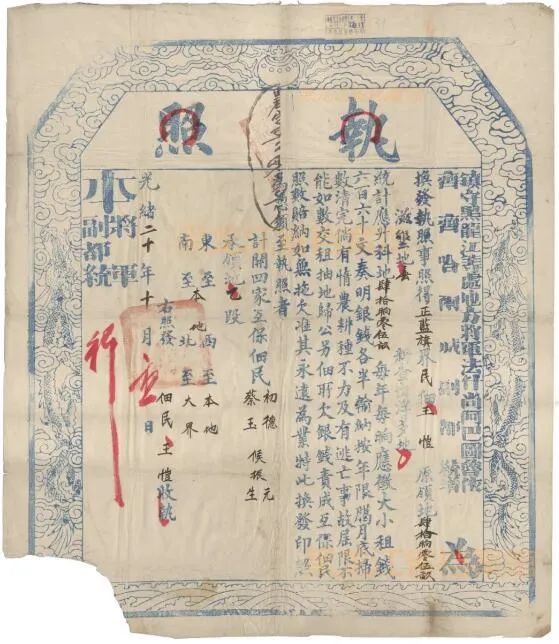 執照
鎮守黑龍江等處地方將軍法什尚阿巴圖魯依
齊齊哈爾城副都統增 為
換發執照事照得正藍旗界民佃王愷 原領地肆拾晌零伍畝
滋生地
統計應升科地肆拾晌零伍畝 每年每晌應徵大小租錢
六百六十文奏明銀錢各半輸納按年限臘月底掃
數清完倘有惰農耕種不力及有逃亡事故屆限不
能如數交租抽地歸公另佃所欠銀錢責成互保佃民
照數賠納如無拖欠准其永遠為業特此換發印
至執照者
計開四家互保佃民 初德元
蔡玉 侯振生
承領地 段
東至本地西至本地
南至 北至大界
右照發 佃民王愷收執
光緒二十年十月 日
將軍
副都統
行